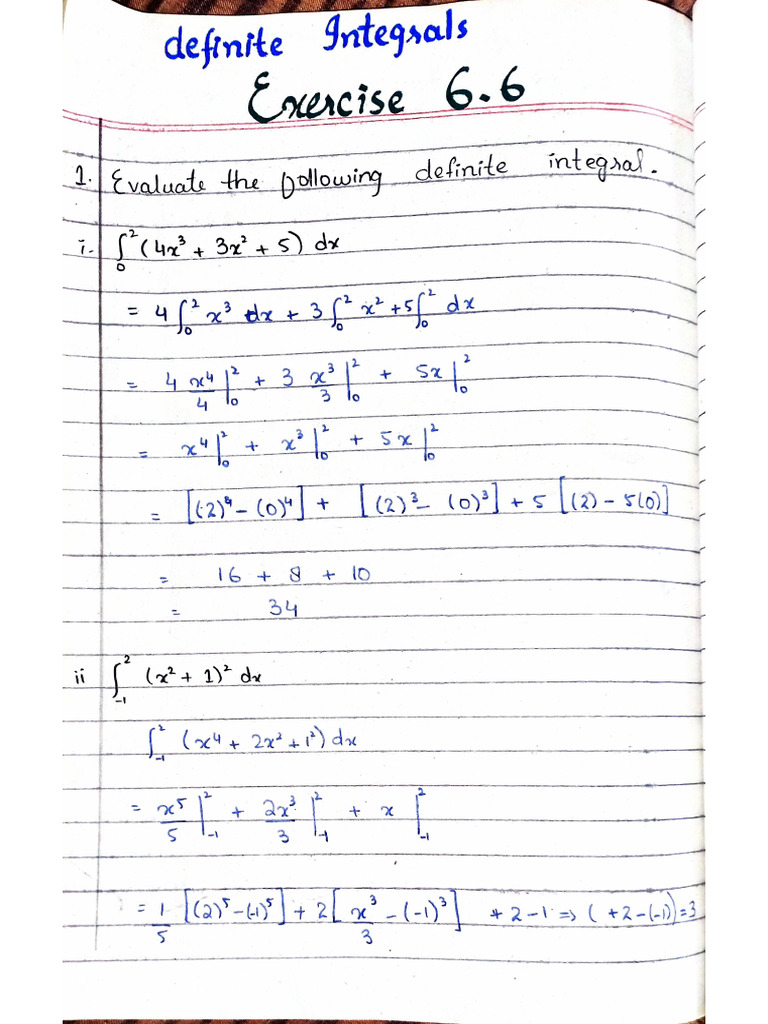 definite Integrals
Exercise 6.6
1. Evaluate the following definite integral.
i. ∫₀² (4x³ + 3x² + 5) dx
= 4∫₀² x³ dx + 3∫₀² x² + 5∫₀² dx
= 4 x⁴/4 |₀² + 3 x³/3 |₀² + 5x |₀²
= x⁴|₀² + x³|₀² + 5x|₀²
= [(2)⁴ – (0)⁴] + [(2)³ – (0)³] + 5 [(2) – 5(0)]
= 16 + 8 + 10
= 34
ii ∫₋₁² (x² + 1)² dx
∫₋₁² (x⁴ + 2x² + 1²) dx
= x⁵/5 |₋₁² + 2x³/3 |₋₁² + x |₋₁²
= 1/5 [(2)⁵ – (-1)⁵] + 2[x³/3 – (-1)³] + 2 – 1 ⇒ ( +2 – (-1)) = 3